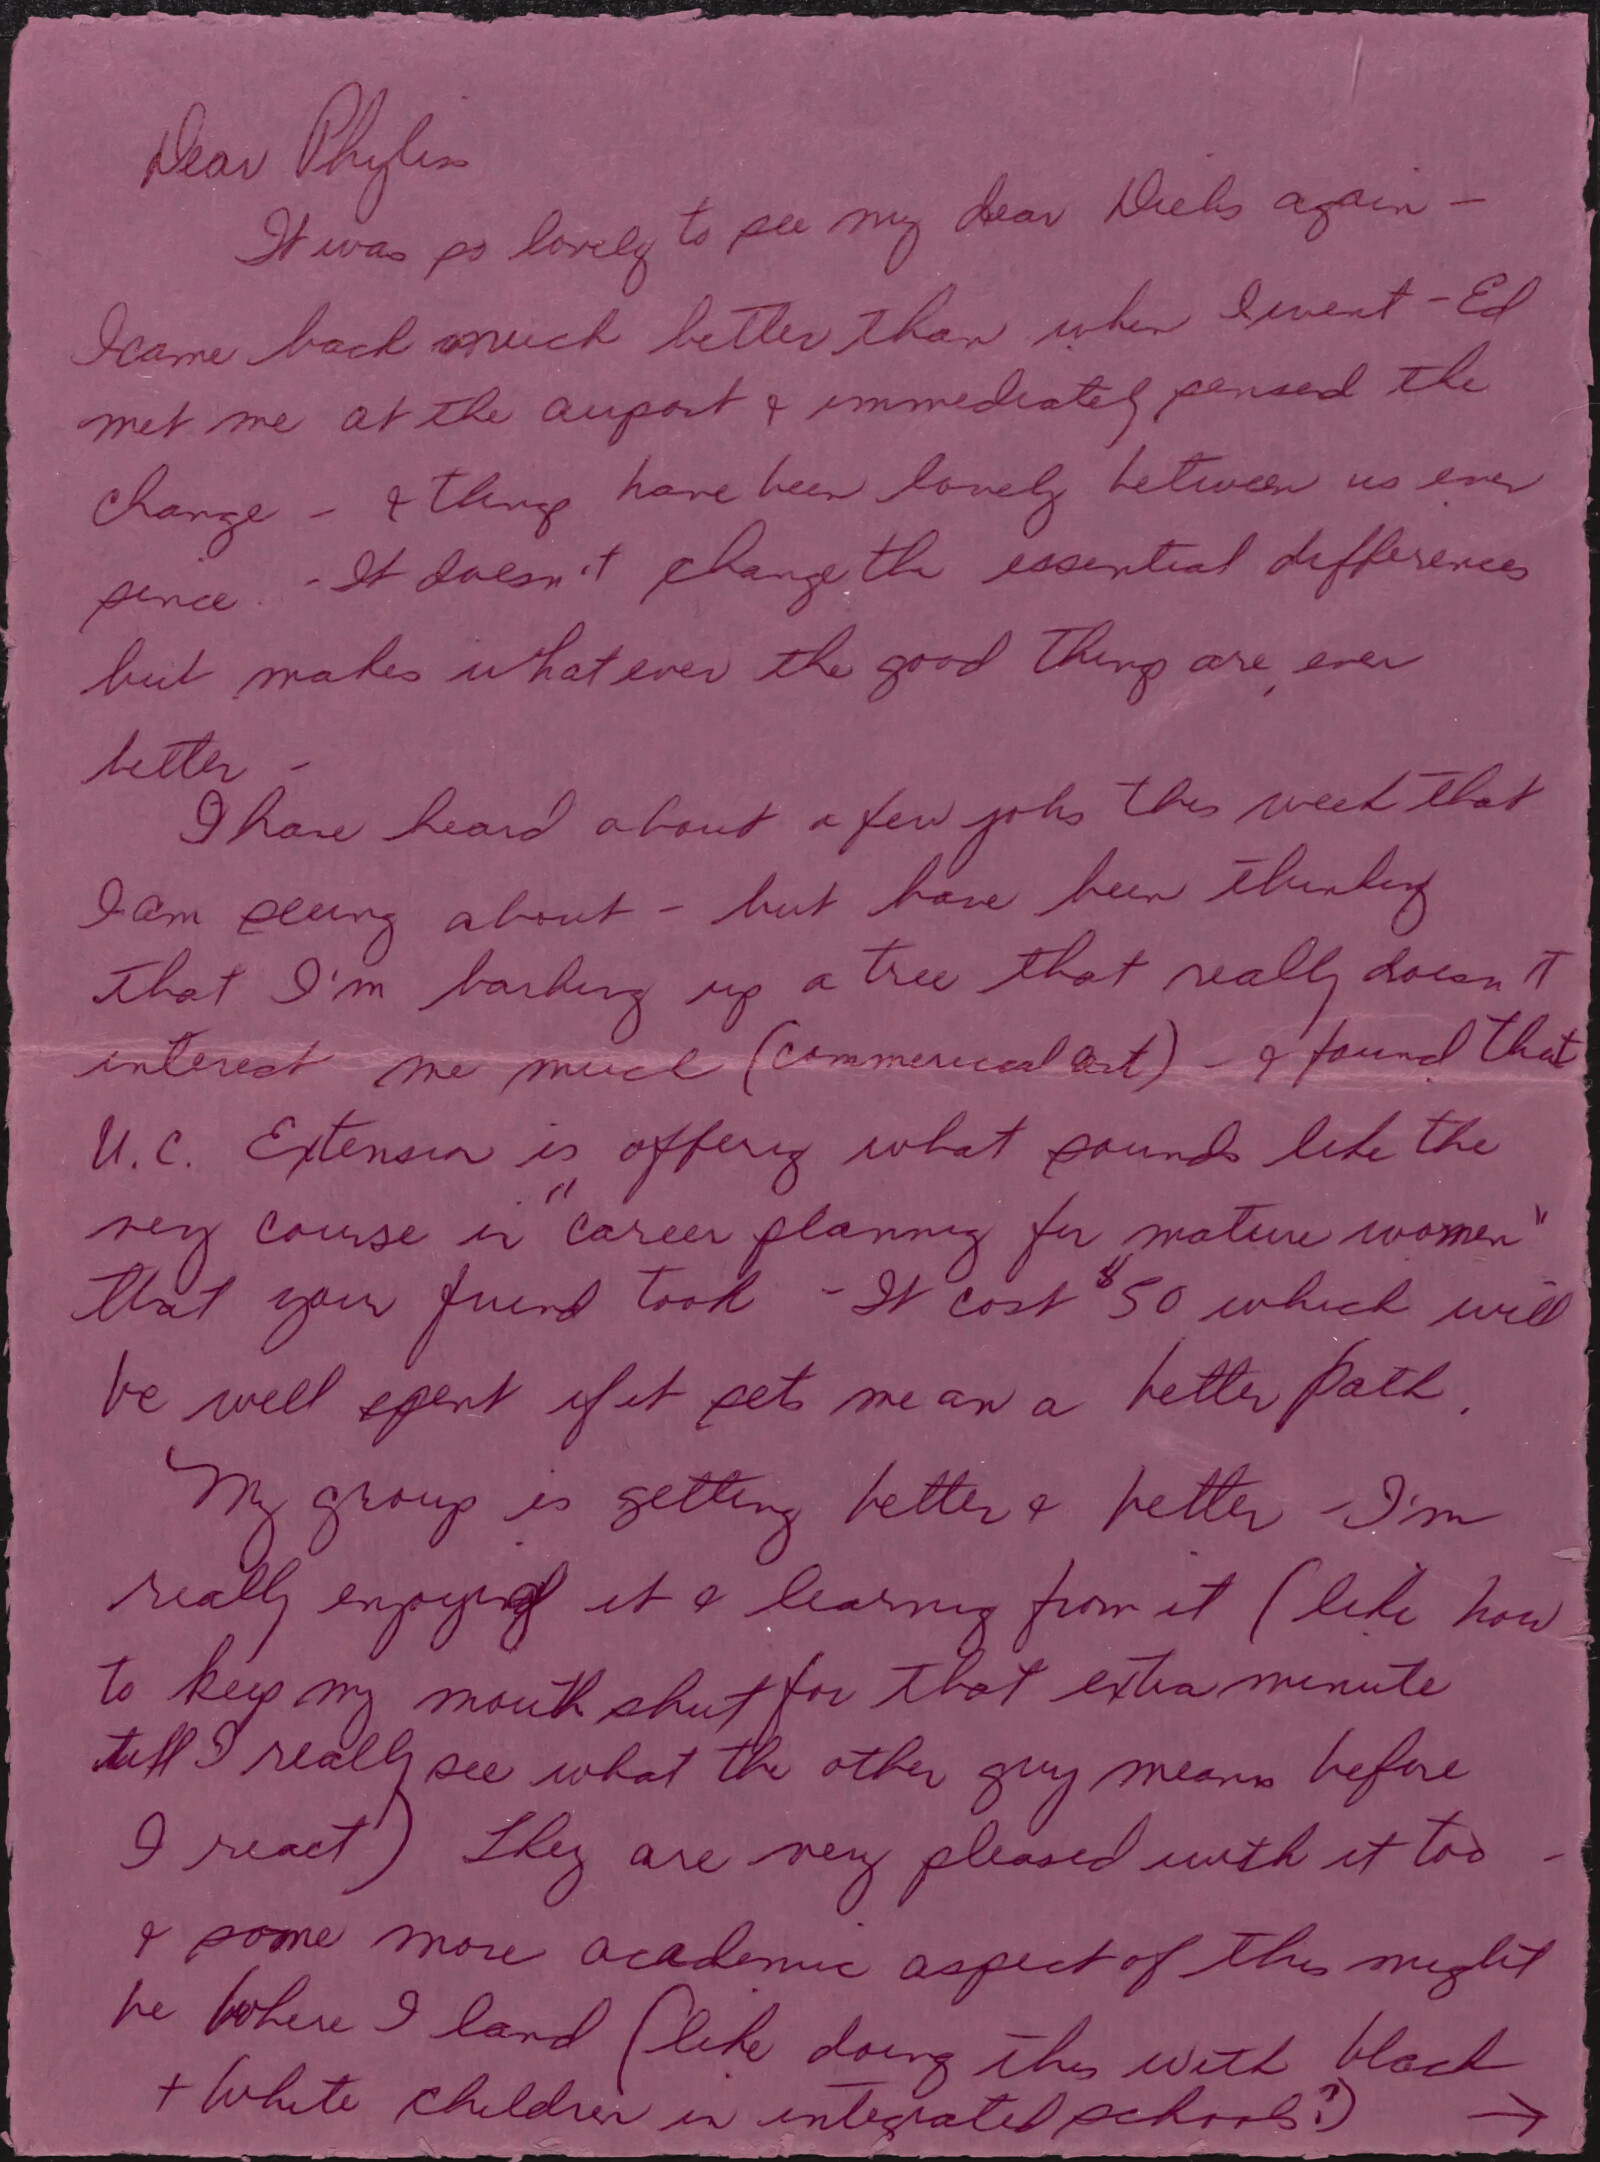 Dear Phyliss
It was so lovely to see my dear Diehs again -
I came back much better than when I went - Ed
met me at the airport & immediately sensed the
change - & things have been lovely between us ever
since. - It doesn't change the essential differences
but makes whatever the good things are, even
better -
I have heard about a few jobs this week that
I am seeing about - but have been thinking
that I'm barking up a tree that really doesn't
interest me much (commerical art) - & found that
U.C. Extension is offering what sounds like the
very course in "career planning for mature women"
that your friend took - It cost $50 which will
be well spent if it sets me on a better path.
My group is getting better & better - I'm
really enjoying it & learning from it (like how
to keep my mouth shut for that extra minute
till I really see what the other guy means before
I react) They are very pleased with it too -
& some more academic aspect of this might
be where I land (like doing this with black
+ white children in integrated schools?) →